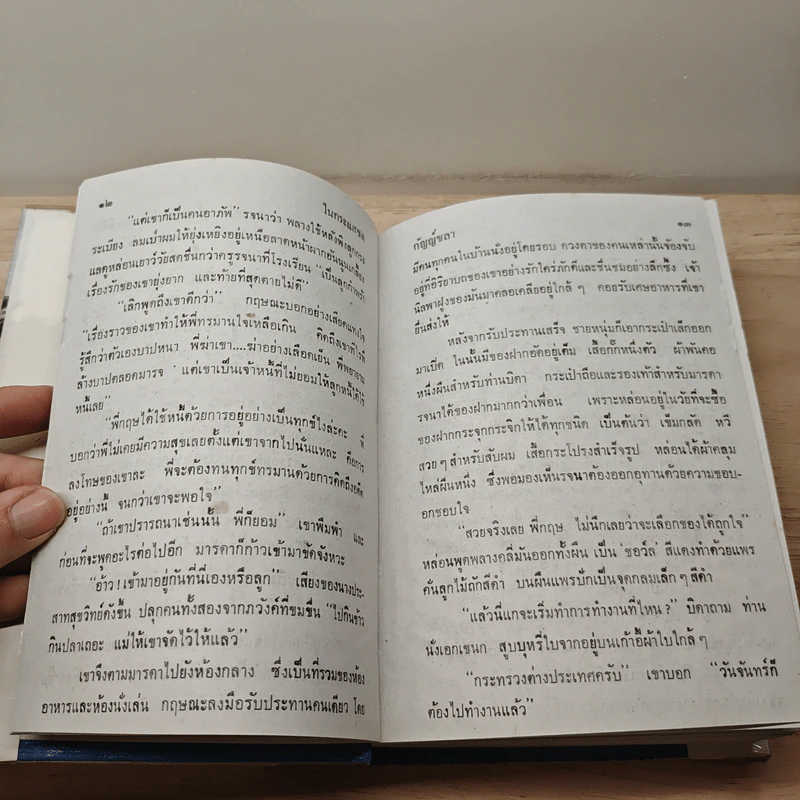 ๑๒
ในกระแสชล
“แต่เขาก็เป็นคนอาภัพ” รจนาว่า พลางใช้หลังพิงลูกกรง
ระเบียง ลมเป่าผมให้ยุ่งเหยิงอยู่เหนือลาดหน้าผากอันนูนเกลี้ยง
แลดูหล่อนเยาว์วัยสดชื่นกว่าครูรจนาที่โรงเรียน “เป็นลูกกำพร้า
เรื่องรักของเขายุ่งยาก และท้ายที่สุดตายไม่ดี”
“เลิกพูดถึงเขาดีกว่า” กฤษณะบอกอย่างเสียดแทงใจ
“เรื่องราวของเขาทำให้พี่ทรมานใจเหลือเกิน คิดถึงเขาทีไร
รู้สึกว่าตัวเองบาปหนา พี่ฆ่าเขา....ฆ่าอย่างเลือดเย็น พี่พยายาม
ล้างบาปตลอดมารจ แต่เขาเป็นเจ้าหนี้ที่ไม่ยอมให้ลูกหนี้ได้ใช้
หนี้เลย”
“พี่กฤษได้ใช้หนี้ด้วยการอยู่อย่างเป็นทุกข์ไงล่ะคะ พี่
บอกว่าพี่ไม่เคยมีความสุขเลยตั้งแต่เขาจากไปนั่นแหละ คือการ
ลงโทษของเขาละ พี่จะต้องทนทุกข์ทรมานด้วยการคิดถึงอดีต
อยู่อย่างนี้ จนกว่าเขาจะพอใจ”
“ถ้าเขาปรารถนาเช่นนั้น พี่ก็ยอม” เขาพึมพำ และ
ก่อนที่จะพูดอะไรต่อไปอีก มารดาก็ก้าวเข้ามาขัดจังหวะ
“อ้าว ! เข้ามาอยู่กันที่นี่เองหรือลูก” เสียงของนางประ-
สาทสุขวิทย์ดังขึ้น ปลุกคนทั้งสองจากภวังค์ที่ขมขื่น “ไปกินข้าว
กินปลาเถอะ แม่ให้เขาจัดไว้ให้แล้ว”
เขาจึงตามมารดาไปยังห้องกลาง ซึ่งเป็นที่รวมของห้อง
อาหารและห้องนั่งเล่น กฤษณะลงมือรับประทานคนเดียว โดย
กัญญ์ชลา
๑๓
มีคนทุกคนในบ้านนั่งอยู่โดยรอบ ดวงตาของคนเหล่านั้นจ้องจับ
อยู่ที่อิริยาบถของเขาอย่างรักใคร่ภักดีและชื่นชมอย่างลึกซึ้ง เจ้า
นิลพาฝูงของมันมาคลอเคลียอยู่ใกล้ ๆ คอยรับเศษอาหารที่เขา
ยื่นส่งให้
หลังจากรับประทานเสร็จ ชายหนุ่มก็เอากระเป๋าเล็กออก
มาเปิด ในนั้นมีของฝากอัดอยู่เต็ม เสื้อกั๊กหนึ่งตัว ผ้าพันคอ
หนึ่งผืนสำหรับท่านบิดา กระเป๋าถือและรองเท้าสำหรับมารดา
รจนาได้ของฝากมากกว่าเพื่อน เพราะหล่อนอยู่ในวัยที่จะซื้อ
ของฝากกระจุกกระจิกให้ได้ทุกชนิด เป็นต้นว่า เข็มกลัด หวี
สวย ๆ สำหรับสับผม เสื้อกระโปรงสำเร็จรูป หล่อนได้ผ้าคลุม
ไหล่ผืนหนึ่ง ซึ่งพอมองเห็นรจนาต้องออกอุทานด้วยความชอบ-
อกชอบใจ
“สวยจริงเลย พี่กฤษ ไม่นึกเลยว่าจะเลือกของได้ถูกใจ”
หล่อนพูดพลางคลี่มันออกทั้งผืน เป็น ‘ชอว์ล’ สีแดงทำด้วยแพร
คั่นลูกไม้ถักสีดำ บนผืนแพรปักเป็นจุดกลมเล็ก ๆ สีดำ
“แล้วนี่แกจะเริ่มทำการทำงานที่ไหน ?” บิดาถาม ท่าน
นั่งเอกเขนก สูบบุหรี่ใบจากอยู่บนเก้าอี้ผ้าใบใกล้ ๆ
“กระทรวงต่างประเทศครับ” เขาบอก “วันจันทร์ก็
ต้องไปทำงานแล้ว”